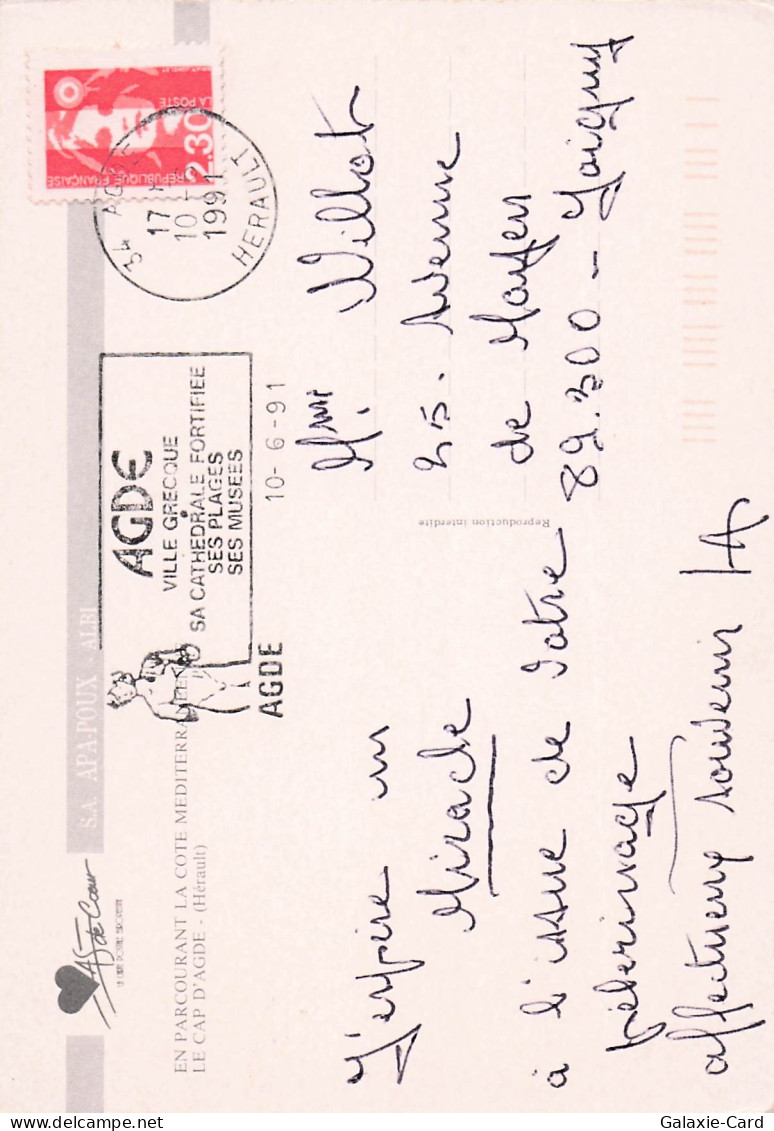 As de Cœur
S.A. APA-POUX - ALBI
EN PARCOURANT LA COTE MEDITERRANEENNE
LE CAP D'AGDE - (Hérault)
J'espère un
Miracle
à l'issue de Votre
pélerinage
affectueux souvenir
Reproduction interdite
AGDE
AGDE
VILLE GRECQUE
SA CATHEDRALE FORTIFIEE
SES PLAGES
SES MUSEES
10-6-91
34 AGDE
17 H
10-6
1991
HERAULT
REPUBLIQUE FRANÇAISE
2.30
LA POSTE
Mme Willot
25. Avenue
de Mayen
89.300 - Joigny
Galaxie-Card